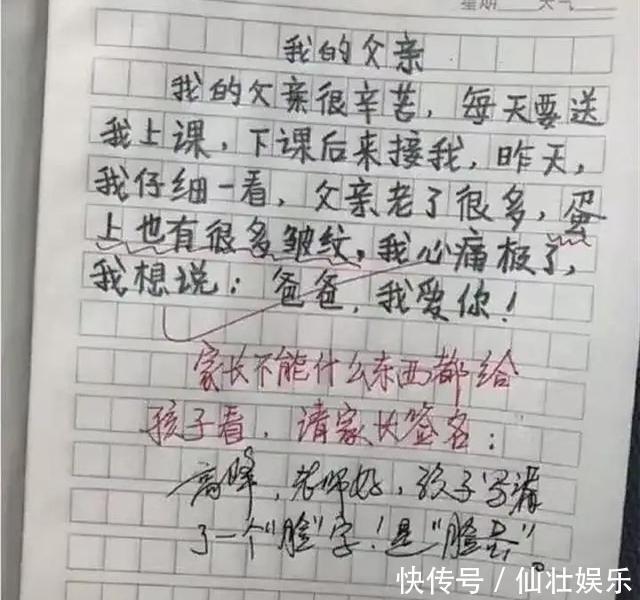 星期 天气
我的父亲
我的父亲很辛苦，每天要送
我上课，下课后来接我，昨天，
我仔细一看，父亲老了很多，蛋
上也有很多皱纹，我心痛极了，
我想说：爸爸，我爱你！
家长不能什么东西都给
孩子看，请家长签名：
高峰，老师好，孩子写漏
了一个"脸"字！是"脸蛋"。
快传号 / 仙壮娱乐